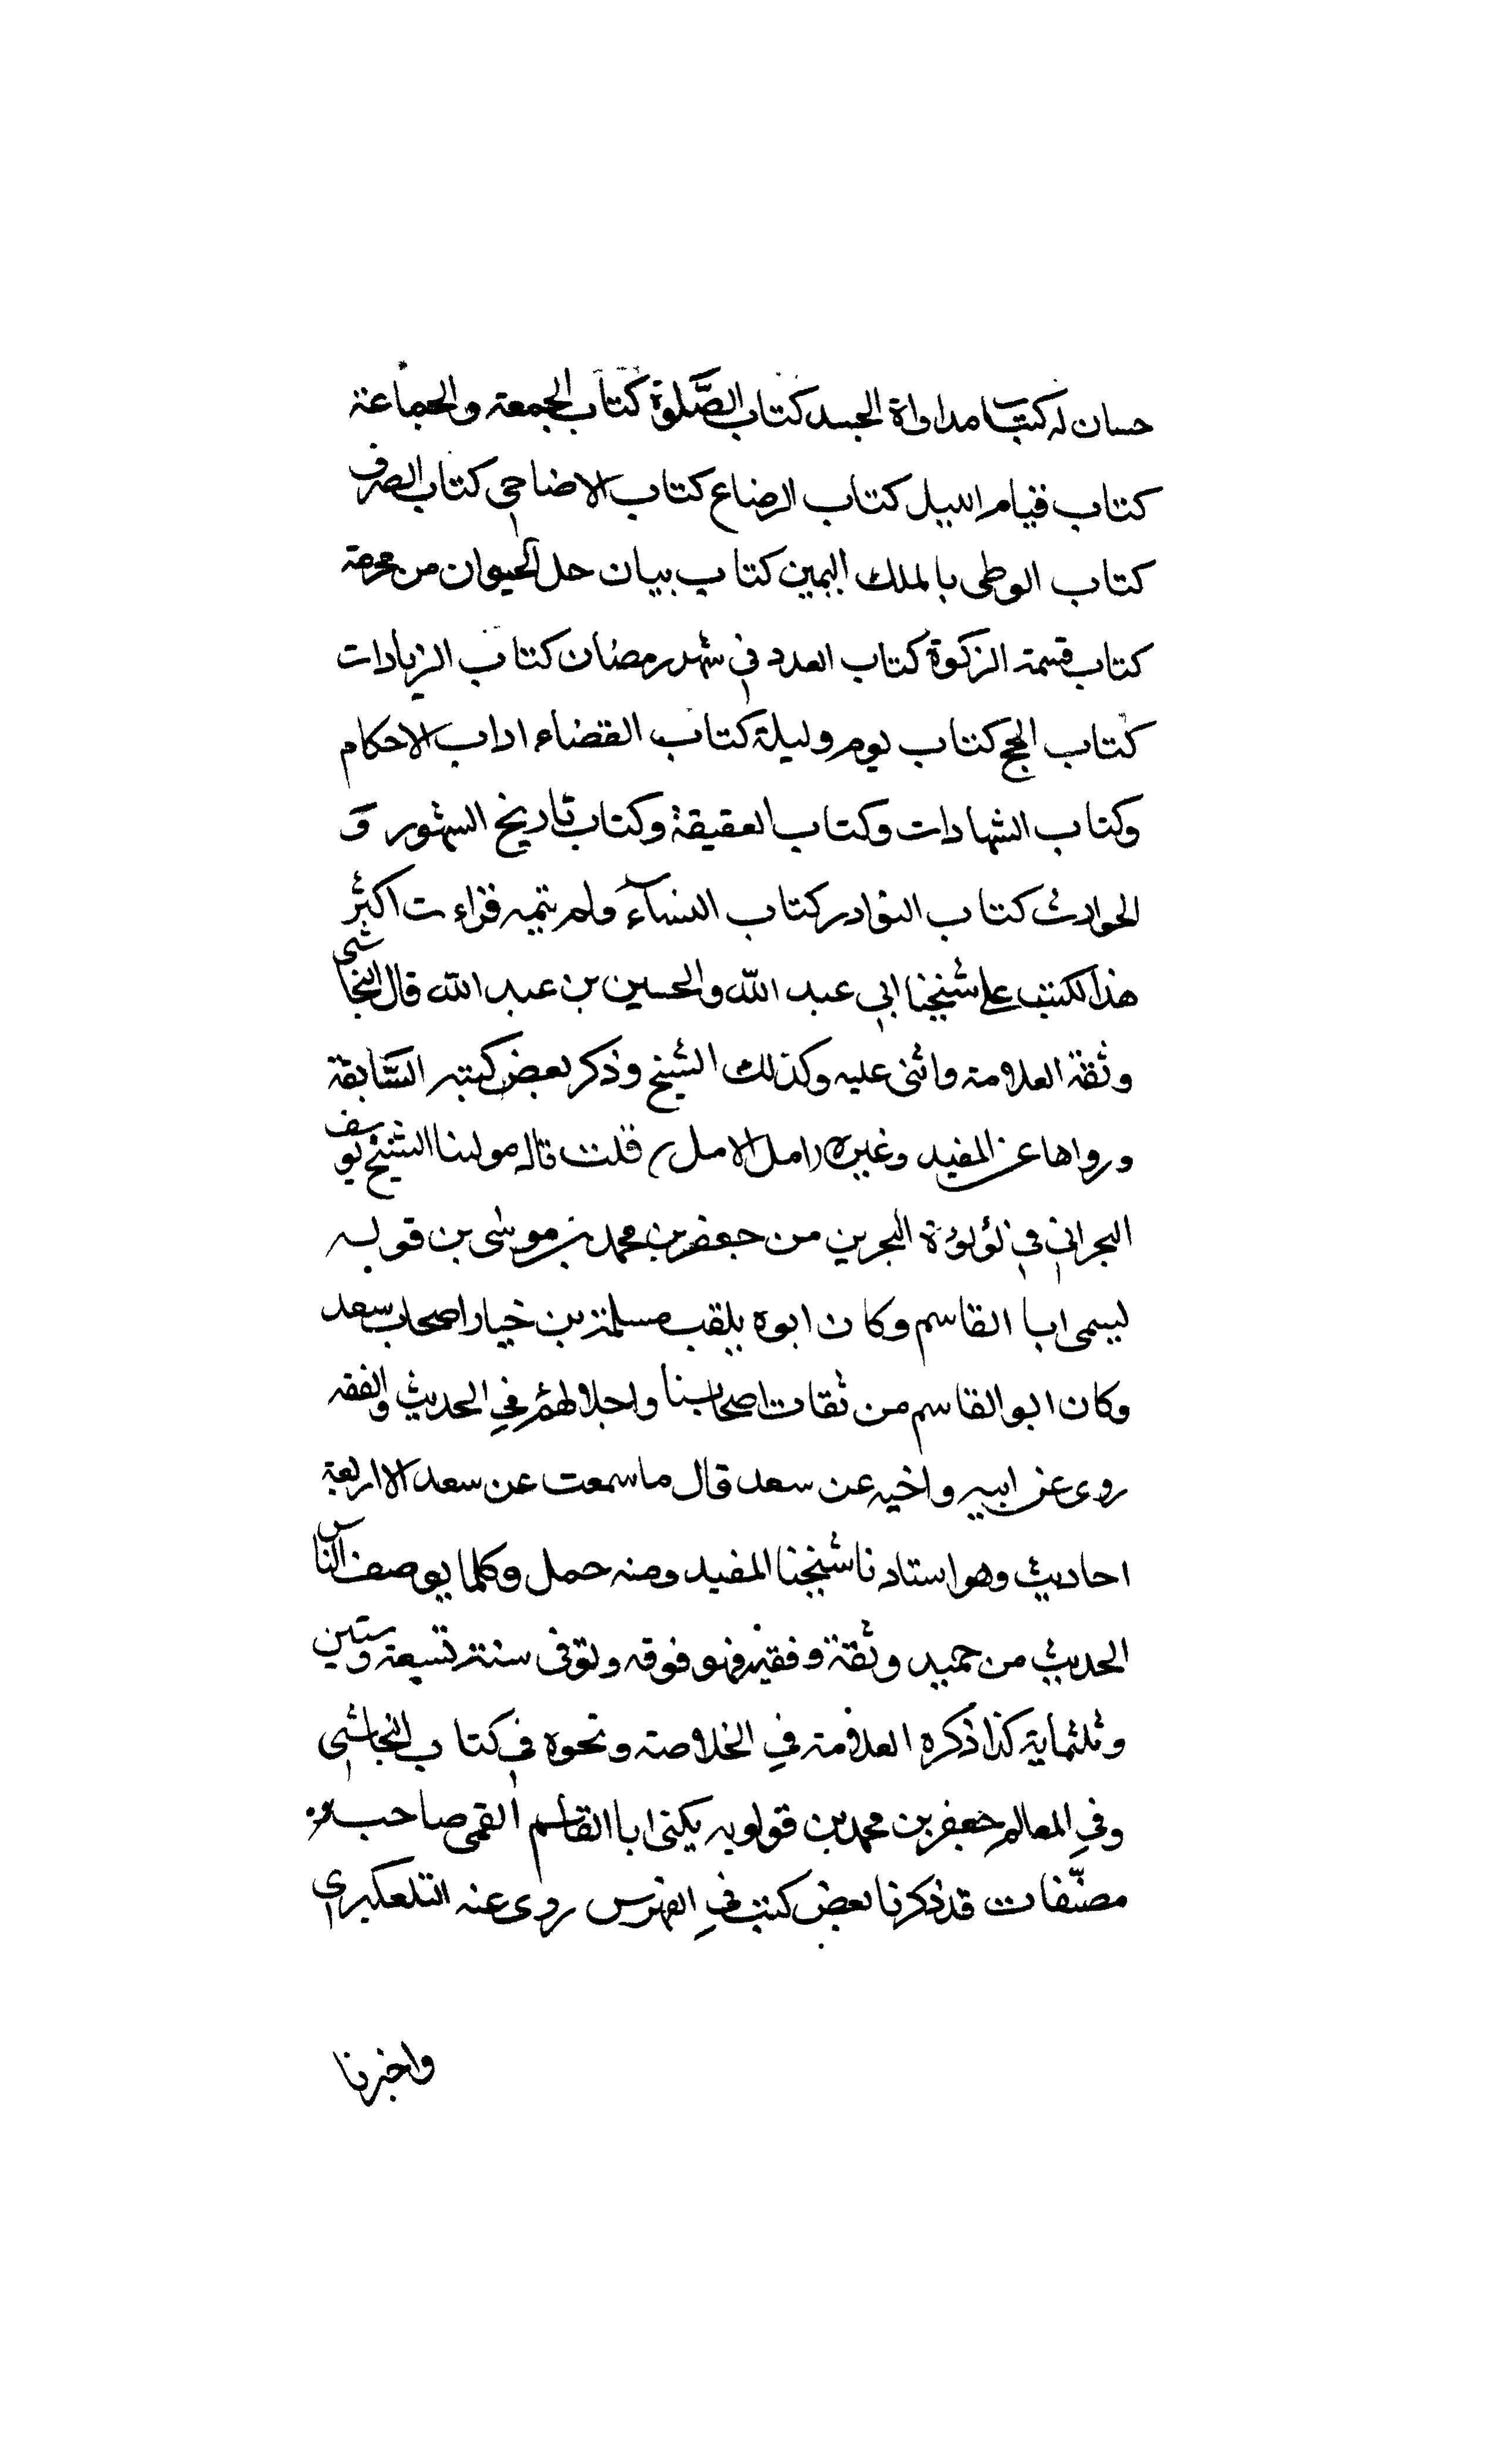 حسان له كتب كتاب مداواة الجسد كتاب الصّلوة كتاب الجمعة والجماعة
كتاب قيام الليل كتاب الرضاع كتاب الاضاحي كتاب الصرف
كتاب الوطى بالملك اليمين كتاب بيان حل الحيوان من محرمة
كتاب قسمة الزكوة كتاب العدد في شهر رمضان كتاب الزيادات
كتاب الحج كتاب يوم وليلة كتاب القضاء اداب الاحكام
وكتاب الشهادات وكتاب العقيقة وكتاب تاريخ الشهور و
الحوادث كتاب النوادر كتاب النسآء ولم يتمه قراءت اكثر
هذا الكتب على شيخنا ابي عبد الله والحسين بن عبد الله قال النجاشي
وثقة العلامة واثنى عليه وكذلك الشيخ وذكر بعض كتبه السّابقة
ورواها عن المفيد وغيره امل الامل قلت قاله مولانا الشيخ يوسف
البحراني في لؤلؤة البحرين من جعفر بن محمد بن موسى بن قولويه
يسمى ابا القاسم وكان ابوه يلقب مسلمة من خيار اصحاب سعد
وكان ابو القاسم من ثقات اصحابنا واجلالهم في الحديث والفقه
روى عن ابيه واخيه عن سعد قال ما سمعت عن سعد الا اربعة
احاديث وهو استادنا شيخنا المفيد ومنه حمل وكلما يوصف الناس
الحديث من حميد وثقة وفقيه فهو فوقه وتوفى سنة تسعة وستين
وثلثماية كذا ذكره العلامة في الخلاصة ونحوه في كتاب النجاشي
وفي المعالم جعفر بن محمد بن قولويه يكنى ابا القاسم القمى صاحب
مصنّفات قد ذكرنا بعض كتبه في الفهرس روى عنه التلعكبرى
واخبرنا